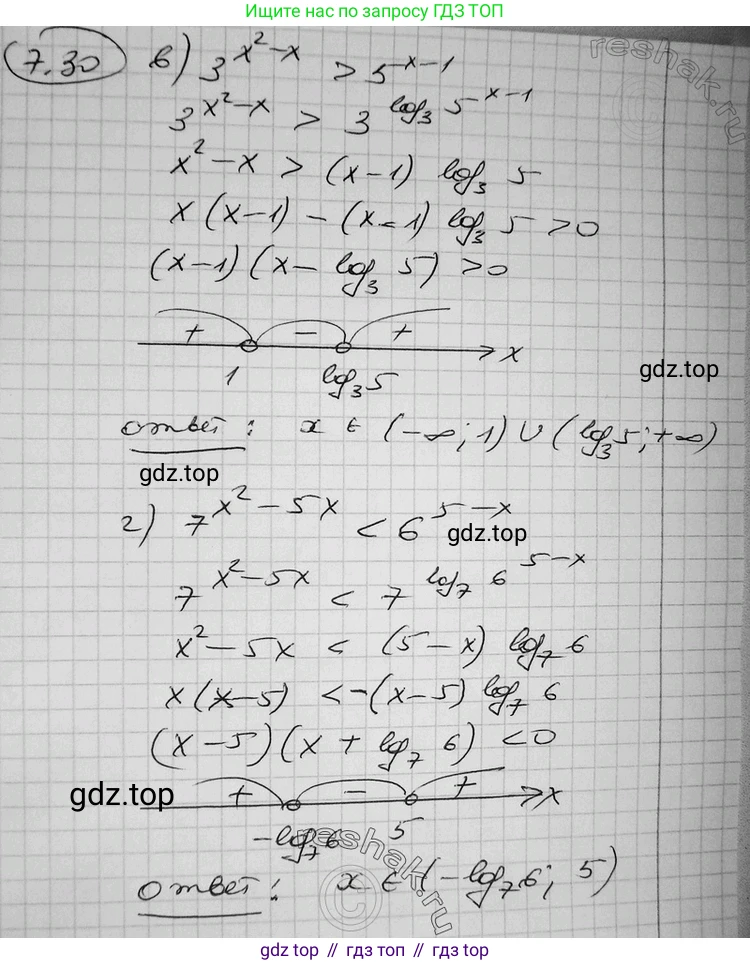 Ищи нас в поиске по запросу ГДЗ ТОП
7.30 в) 3^(x²-x) > 5^(x-1)
reshak.ru
3^(x²-x) > 3^(log₃ 5^(x-1))
x² - x > (x-1) log₃ 5
x (x-1) - (x-1) log₃ 5 > 0
(x-1) (x - log₃ 5) > 0
+ - + x
1 log₃ 5
gdz.top
ответ: x ∈ (-∞; 1) ∪ (log₃ 5; +∞)
gdz.top
г) 7^(x²-5x) < 6^(5-x)
gdz.top
7^(x²-5x) < 7^(log₇ 6^(5-x))
x² - 5x < (5-x) log₇ 6
x (x-5) < -(x-5) log₇ 6
(x-5) (x + log₇ 6) < 0
+ - + x
gdz.top
-log₇ 6 5
reshak.ru
ответ: x ∈ (-log₇ 6; 5)
gdz.top // гдз топ // гдз.top